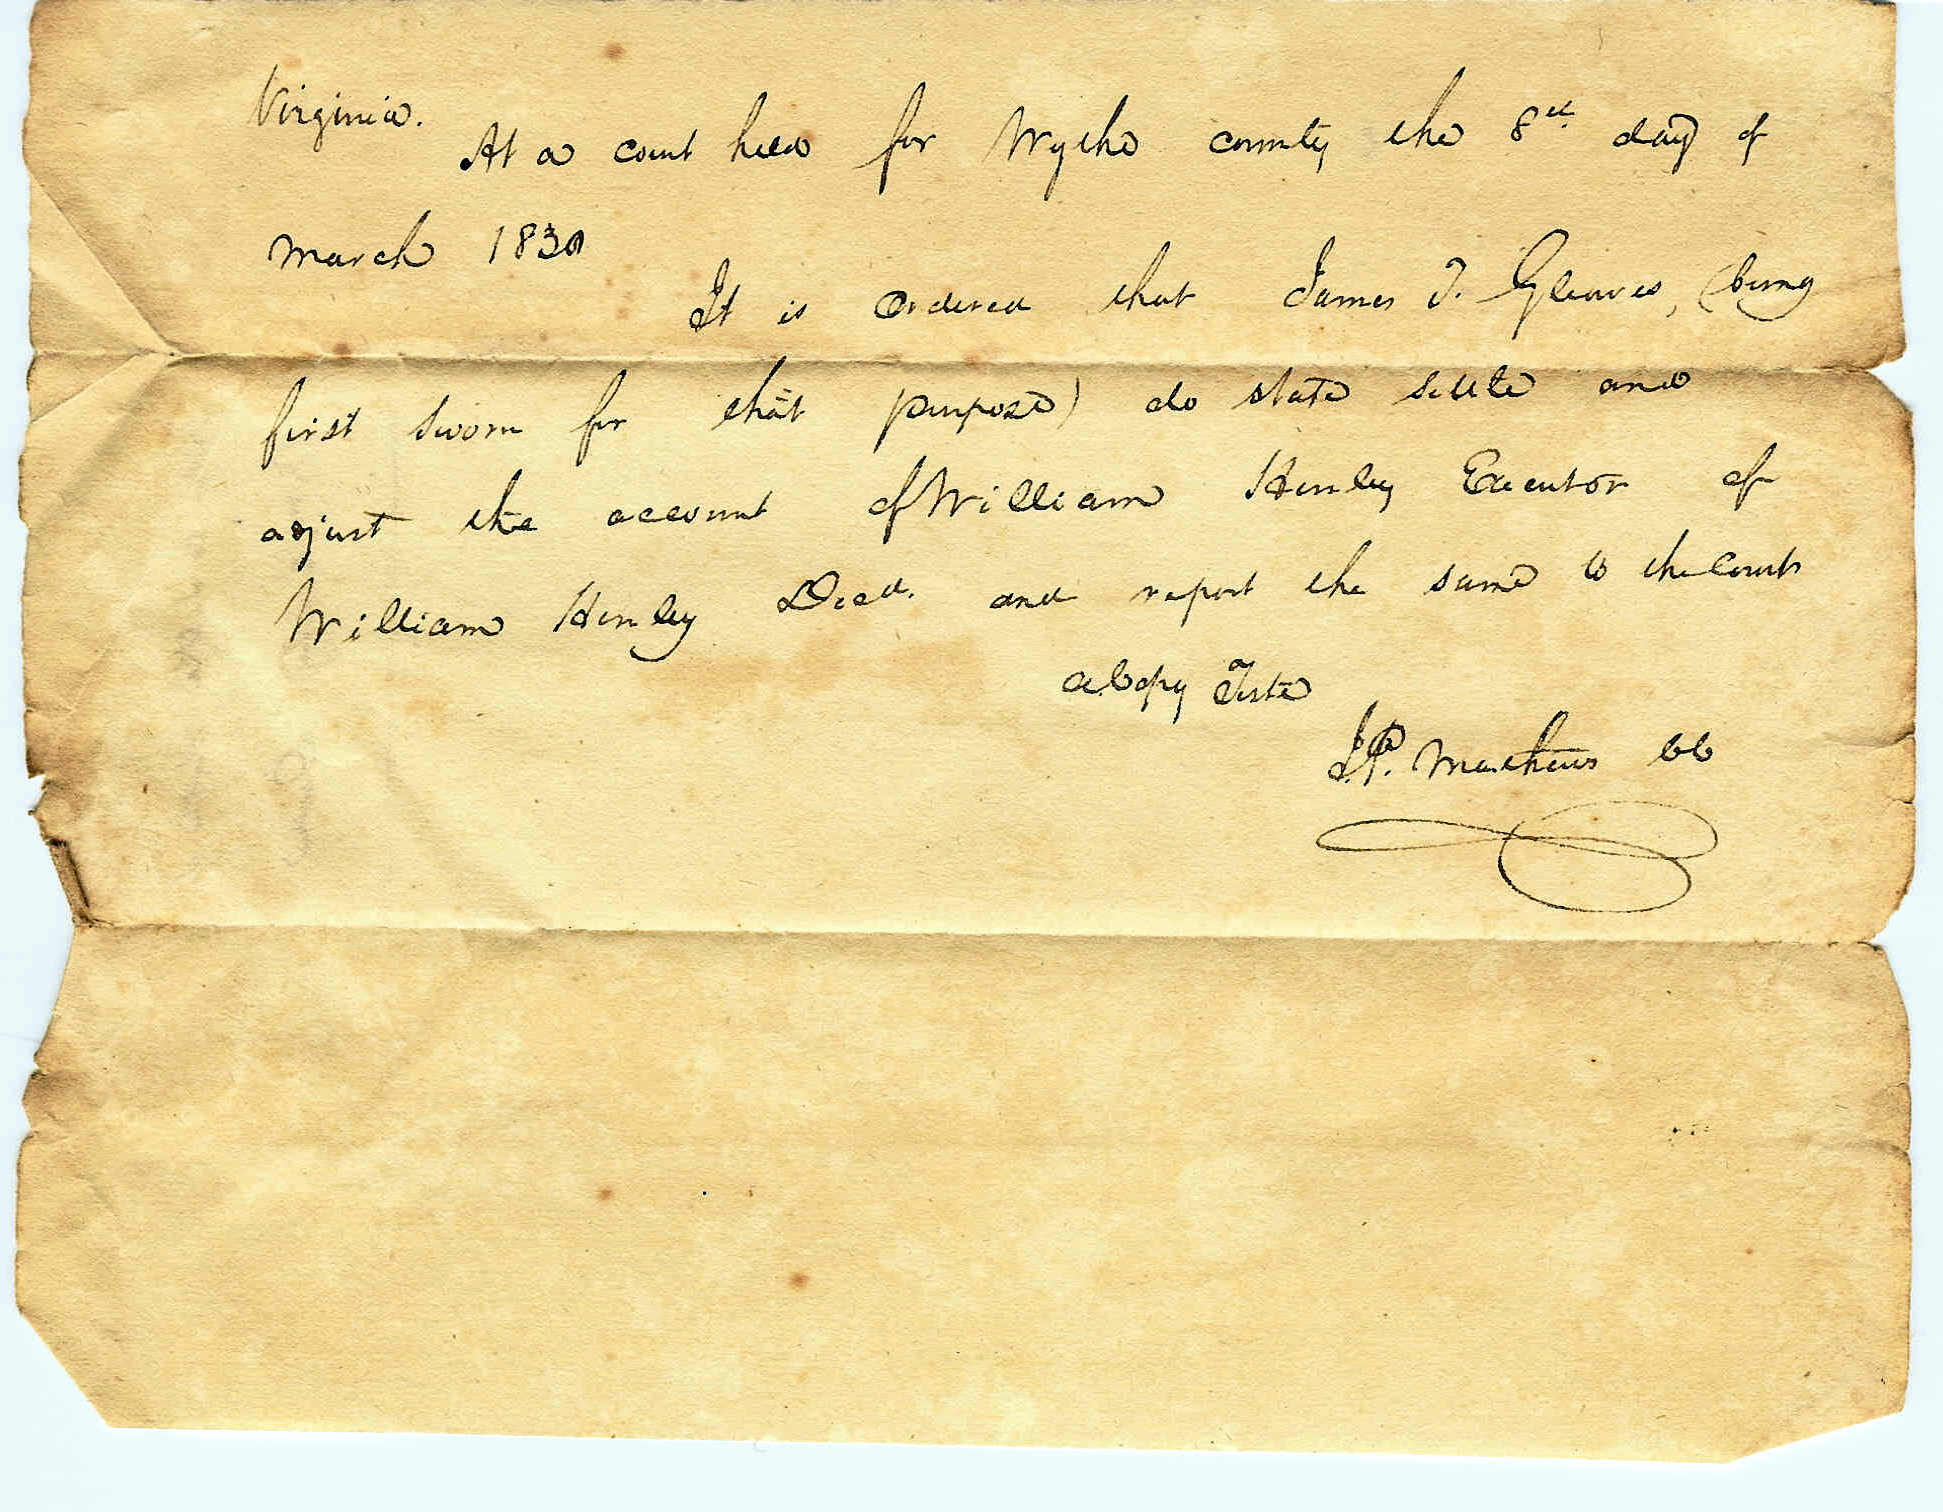 Virginia.
At a court held for Wythe county the 8th day of
March 1830
It is ordered that James T. Gleaves, (being
first sworn for that purpose) do state settle and
adjust the account of William Henley Executor of
William Henley Decd. and report the same to the Court
a Copy Teste
J.P. Mathews CC